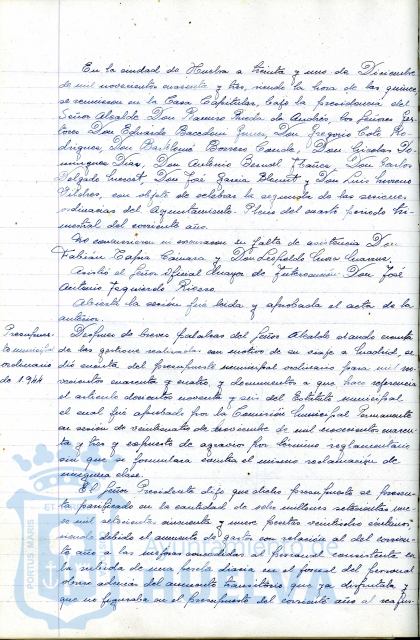 En la ciudad de Huelva a treinta y uno de Diciembre
de mil novecientos cuarenta y tres, siendo la hora de las quince,
se reunieron en la Casa Capitular, bajo la presidencia del
Señor Alcalde Don Ramiro de Andrés, los Señores Ges-
tores Don Eduardo Don Gregorio Ro-
dríguez, Don Borrero Conde, Don Nicolás Do-
mínguez Díaz, Don Antonio Bernal Ibáñez, Don Carlos
Delgado Don José García y Don Luis
con objeto de celebrar la segunda de las sesiones
ordinarias del Ayuntamiento Pleno del cuarto período tri-
mestral del corriente año.
No concurrieron ni excusaron su falta de asistencia Don
Fabián Tapia Cámara y Don Leopoldo
Asistió el Señor Oficial Mayor de Intervención Don José
Antonio Izquierdo Rivero.
Abierta la sesión fué leída y aprobada el acta de la
anterior.
Presupues-
to municipal
ordinario
de 1.944
Despues de breves palabras del Señor Alcalde dando cuenta
de las gestiones realizadas con motivo de su viaje a Madrid, se
dió cuenta del presupuesto municipal ordinario para mil no-
vecientos cuarenta y cuatro, y documentos a que hace referencia
el artículo doscientos noventa y seis del Estatuto municipal
el cual fué aprobado por la Comisión Municipal Permanente
en sesión de veinticuatro de noviembre de mil novecientos cuaren-
ta y tres y expuesto de agravio por término reglamentario
sin que se formulara contra el mismo reclamación de
ninguna clase.
El Señor Presidente dijo que dicho presupuesto se presen-
ta nivelado en la cantidad de ocho millones setecientas
mil setecientas cincuenta y una pesetas veintidos céntimos,
siendo debido el aumento de gastos con relación al del corrien-
te año a las mejoras concedidas al personal consistente en
la subida de una peseta diaria en el jornal del personal
obrero además del aumento transitorio que ya disfrutaba y
que no figuraba en el presupuesto del corriente año al
PORTUS MARIS
ET
HUELVA